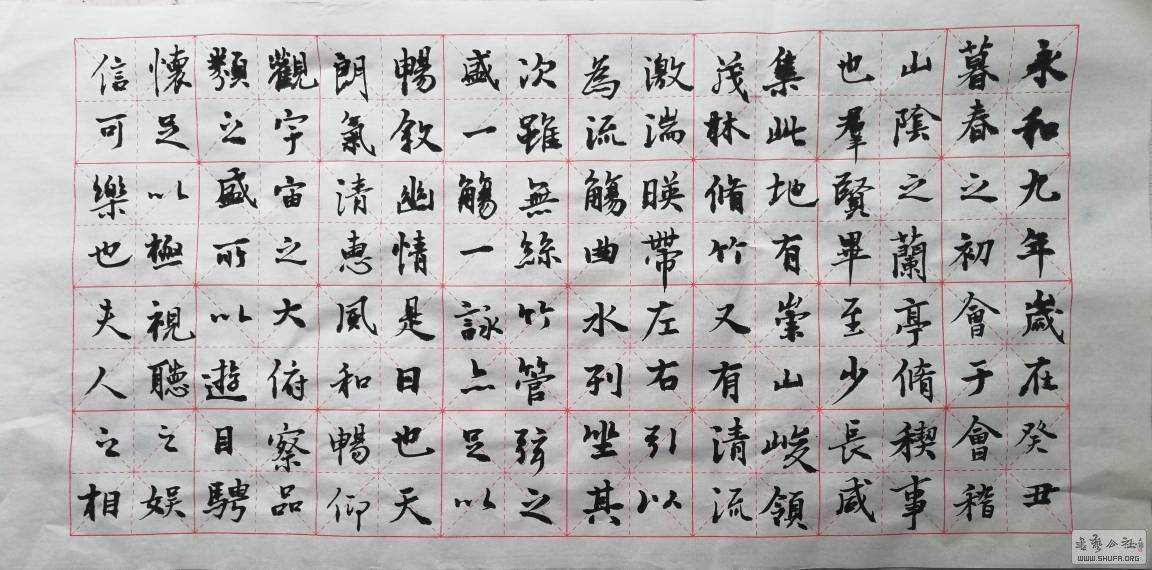 永和九年歲在癸丑
暮春之初會于會稽
山陰之蘭亭脩稧事
也羣賢畢至少長咸
集此地有崇山峻領
茂林脩竹又有清流
激湍暎帶左右引以
為流觴曲水列坐其
次雖無絲竹管弦之
盛一觴一詠亦足以
暢敘幽情是日也天
朗氣清惠風和暢仰
觀宇宙之大俯察品
類之盛所以遊目騁
懷足以極視聽之娛
信可樂也夫人之相
書藝公社
WWW.SHUFA.ORG